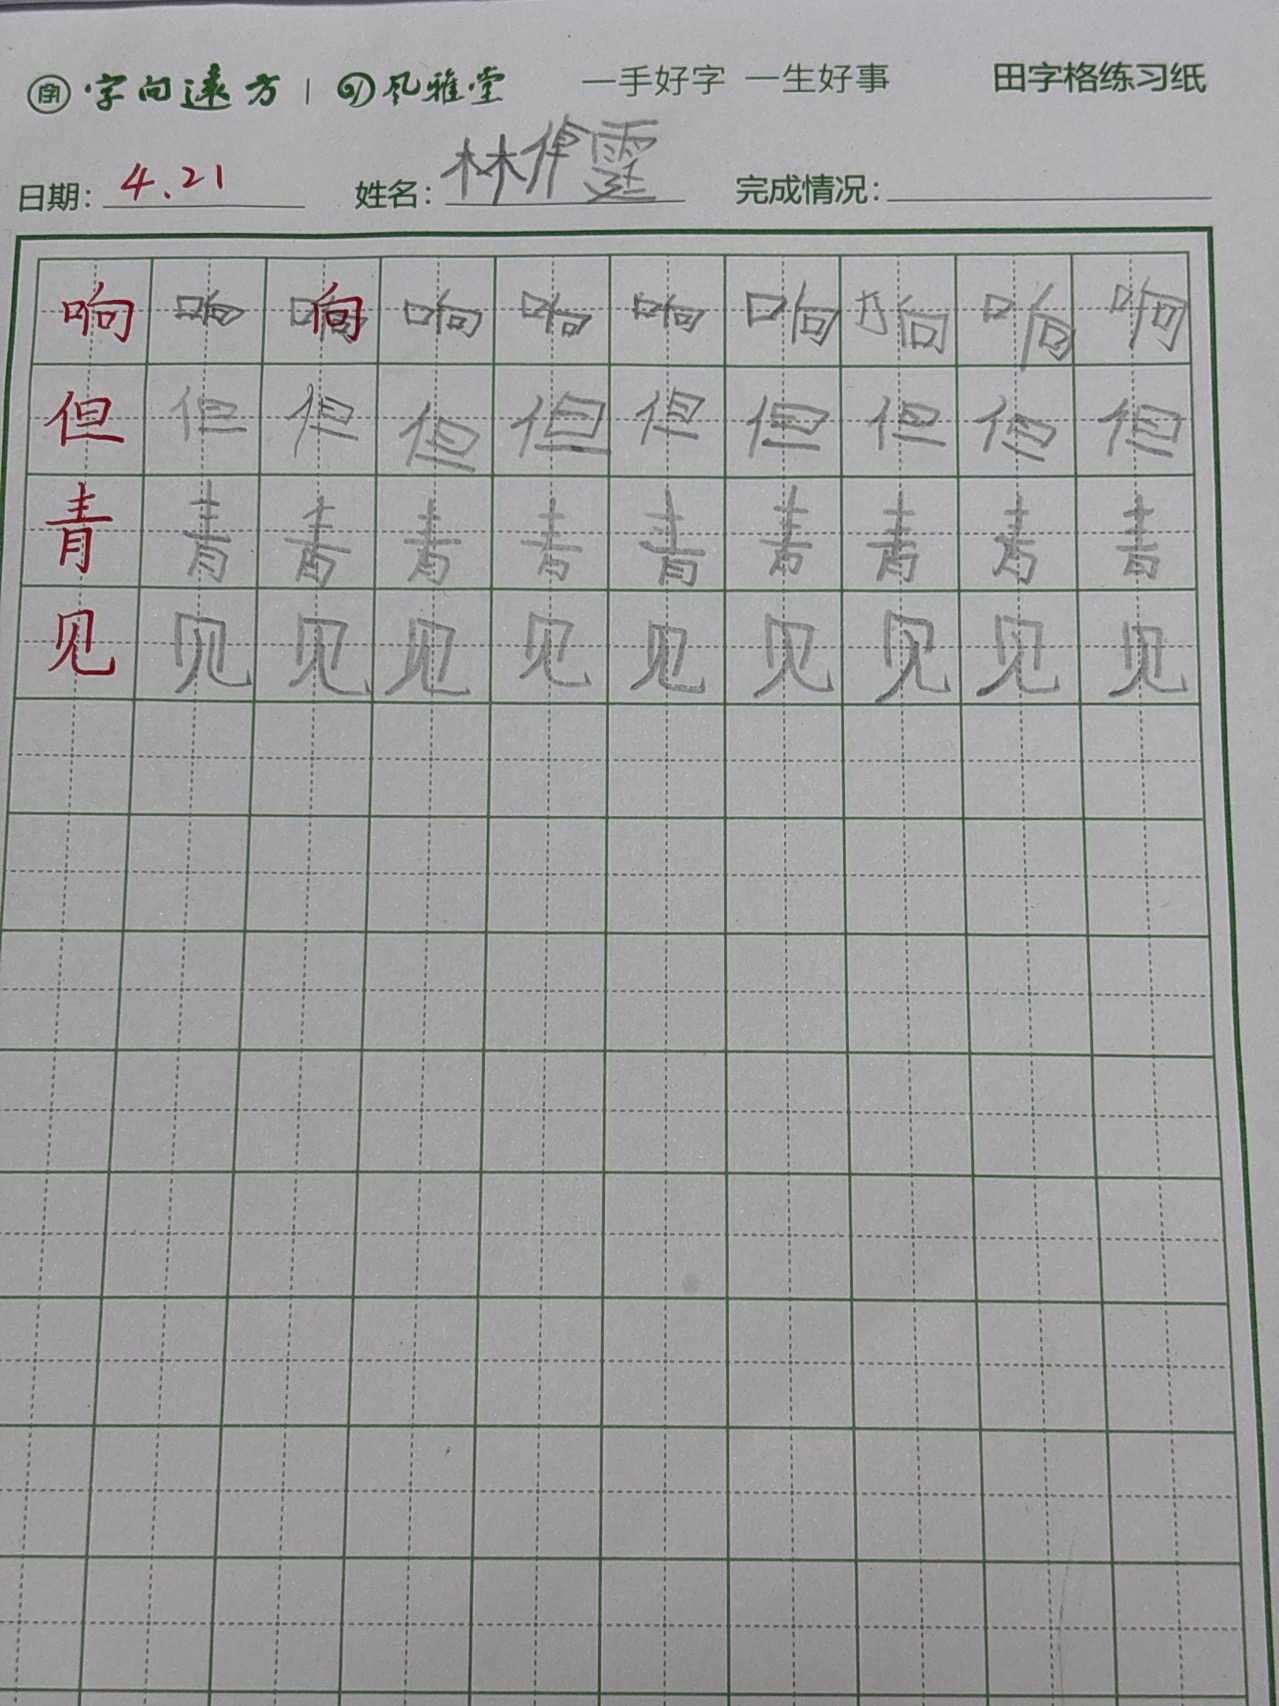 字向遠方 | 风雅堂 一手好字 一生好事 田字格练习纸
日期: 4.21 姓名: 林倬霆 完成情况:
响 响 响 响 响 响 响 响 响 响
但 但 但 但 但 但 但 但 但 但
青 青 青 青 青 青 青 青 青 青
见 见 见 见 见 见 见 见 见 见